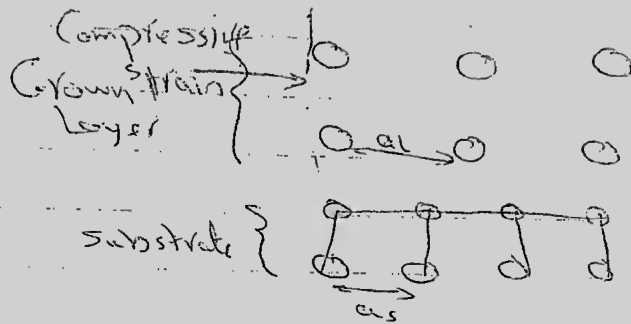 Compressive
Grown strain
Layer
aL
Substrate
as